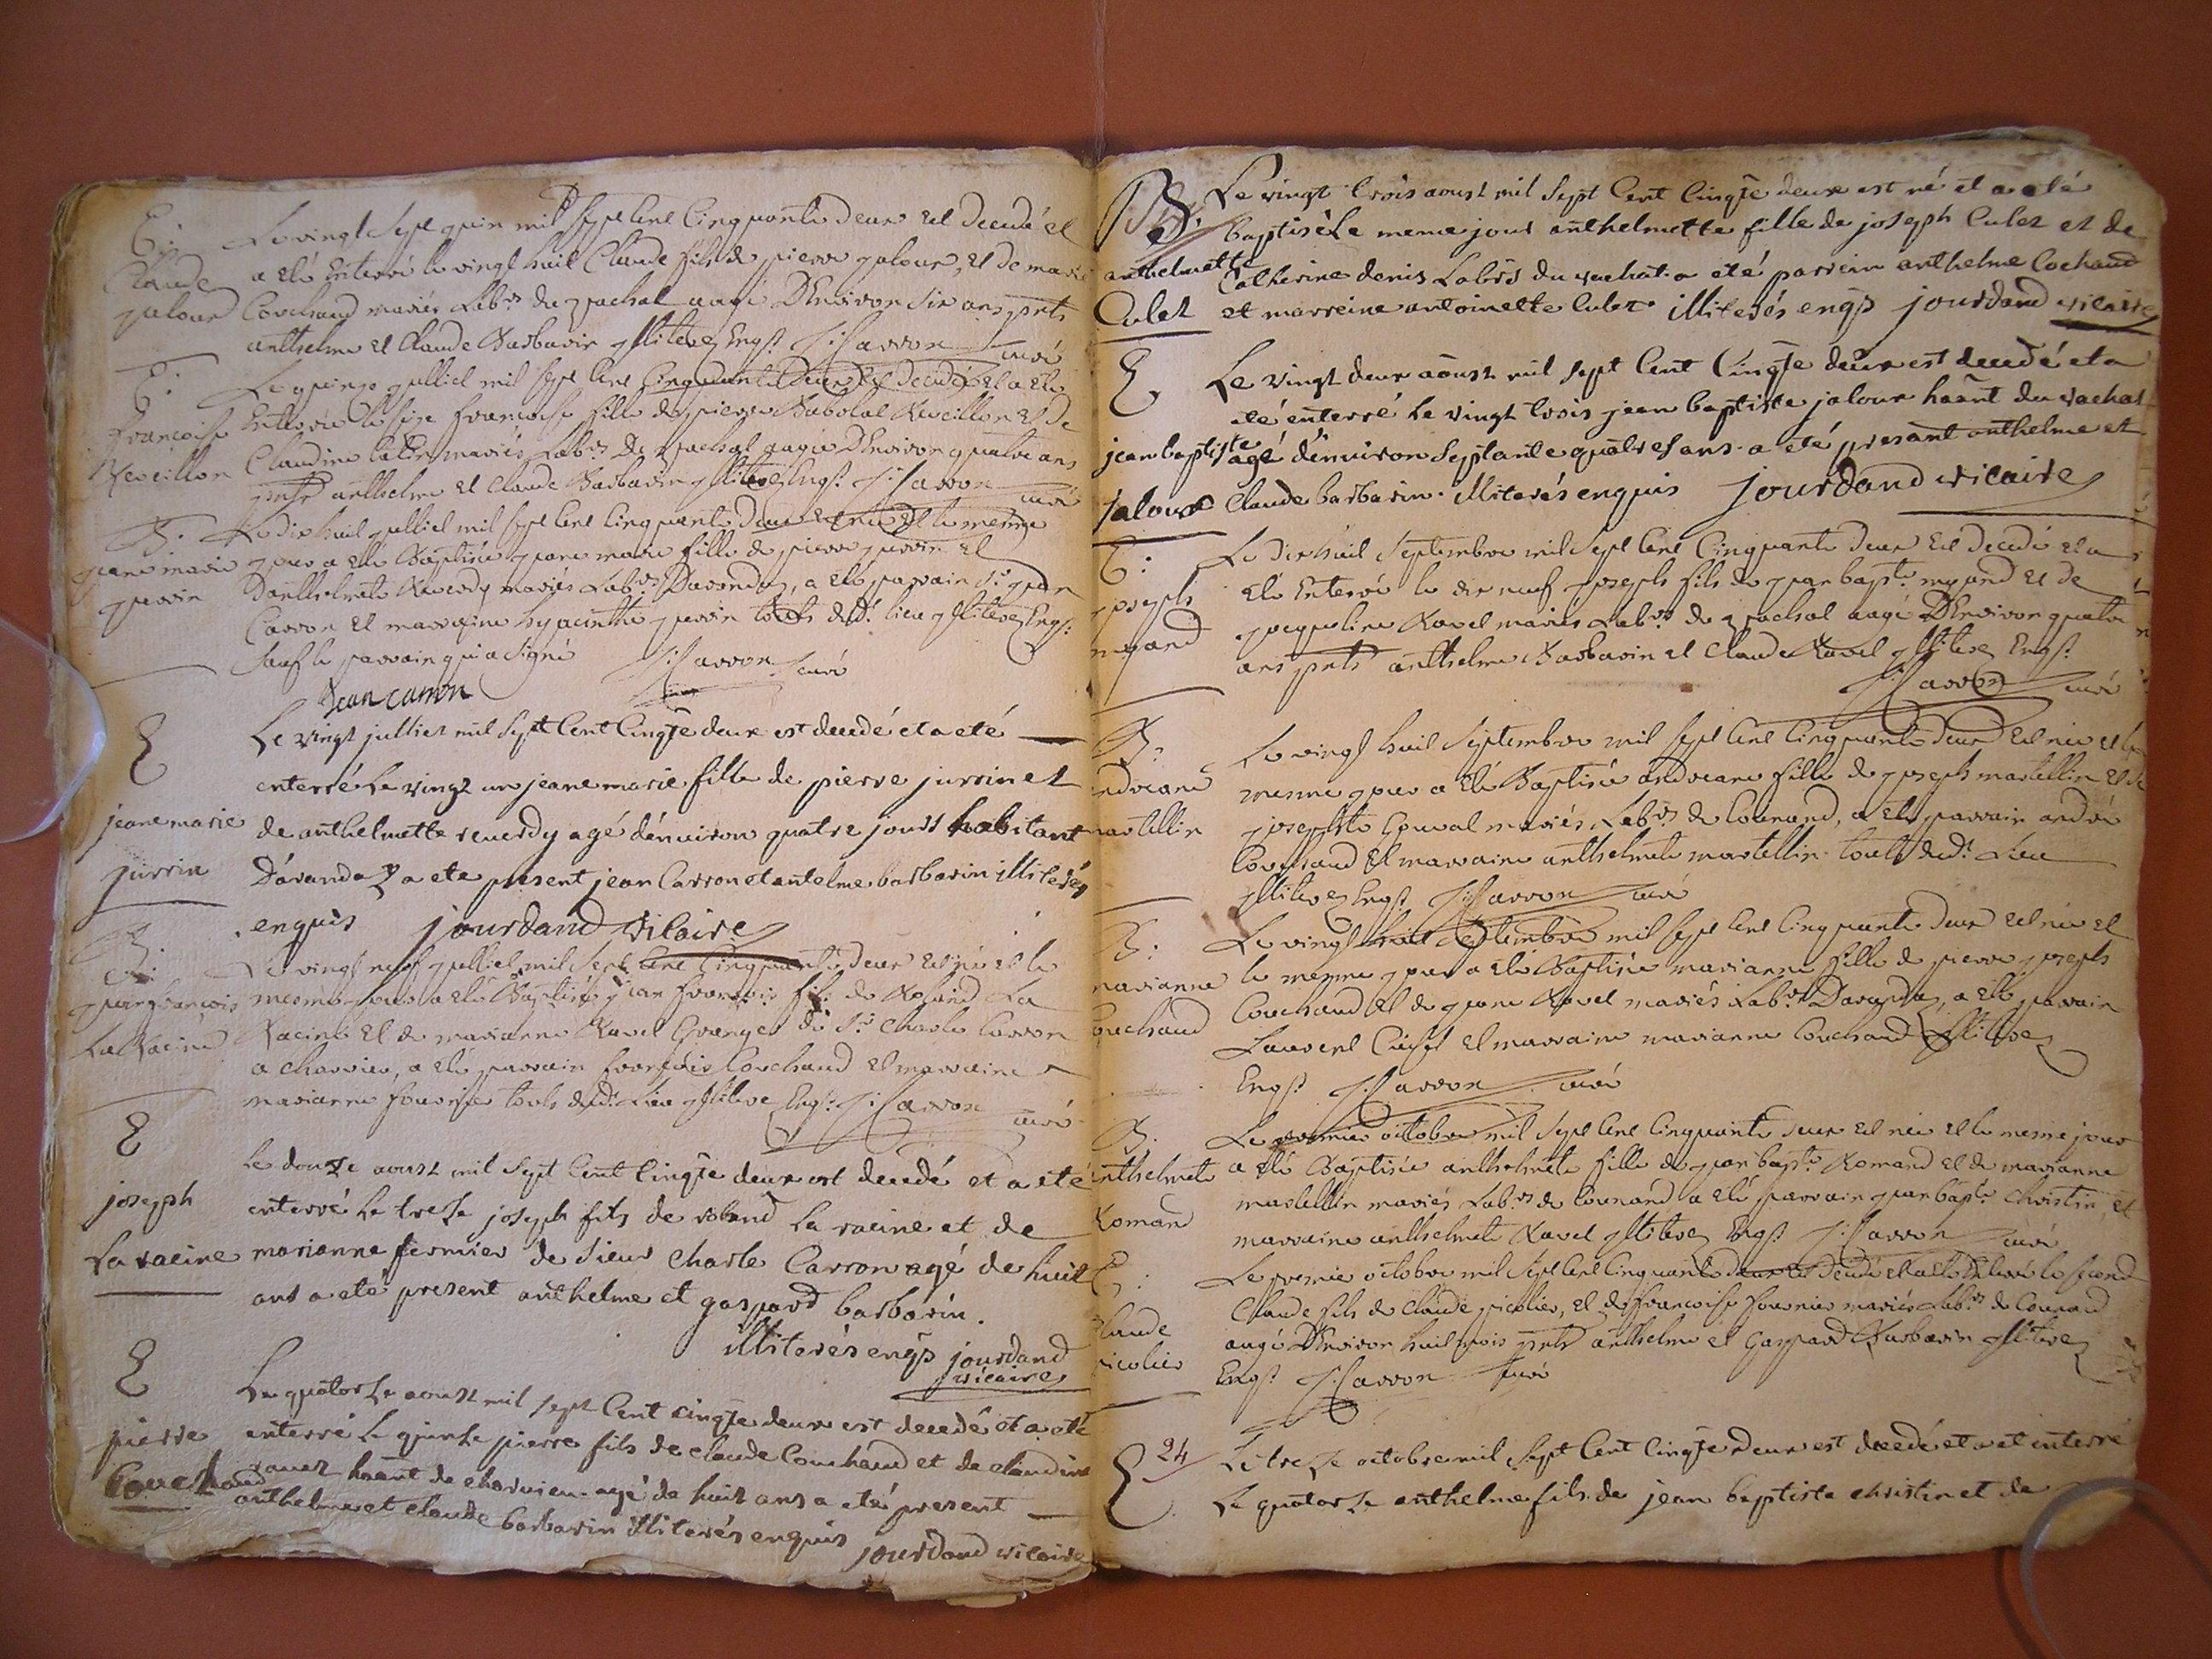 E: Le vingt sept juin mil sept cent cinquante deux est decedé et
Claude a eté enterré le vingt huit Claude fils de pierre jaloux, et de marie
jaloux Couchaud mariés Lab.rs du vachat aagé D'Environ six ans pnts
anthelme et Claude Barbarin illiterez Enq.s J: Carron curé
E: Le quinze julliet mil sept cent cinquante deux est decedée et a eté
francoise Enterrée le seize francoise fille de pierre Reveillon et de
Reveillon Claudine mariés Lab.rs De vachat aagée D'Environ quatre ans
pnts anthelme et Claude Barbarin illiterez Enq.s J: Carron curé
B. Le dix huit julliet mil sept cent cinquante deux est née et le mesme
jeane marie jour a eté Baptisée jeane marie fille de pierre jurrin et
jurrin D'anthelmete Reverdy mariés Lab.rs D'avanda, a eté parrain S.r jean
Carron et marraine hyacinthe jurrin touts dud.t lieu illiterez Enq.s
sauf le parrain qui a signé J: Carron curé
Jean carron
E Le vingt julliet mil sept Cent Cinqte deux est decedé et a eté
enterré Le vingt un jeane marie fille de pierre jurrin et
jeane marie de anthelmette reverdy agé d'enuiron quatre jours habitant
jurrin D'aranda a ete present jean Carron et antelme barbarin illiterés
enquis jourdand vicaire
B. Le vingt neuf julliet mil sept cent cinquante deux est né et le
jean francois mesme jour a eté Baptisé jean francois fils de Roland La
La Racine Racine et de marianne Ravel Granger de S.r Charle Carron
a Charvieu, a eté parrain francois Couchaud et marraine
marianne fournier touts dud.t Lieu illiterez Enq.s J: Carron curé
E Le douze aoust mil sept Cent Cinqte deux est decedé et a eté
joseph enterré le treze joseph fils de roland La racine et de
La racine marianne fermier de sieur Charle Carron agé de huit
ans a eté present anthelme et gaspard barbarin.
illiterés enqs jourdand vicaire
E Le quatorze aoust mil sept Cent cinqte deux est decedé et a eté
pierre enterré le quinze pierre fils de claude Couchaud et de claudine
Couchaud hnant de charuieu agé de huit ans a eté present
anthelme et claude barbarin illiterés enquis jourdand vicaire
B. Le vingt trois aoust mil sept Cent Cinqte deux est né et a eté
baptisé le meme jour anthelmette fille de joseph Culet et de
anthelmette Catherine denis Labrs du vachat a eté parrein anthelme Cochaud
Culet et marreine antoinette Culet illiterés enqs jourdand vicaire
E Le vingt deux aoust mil sept Cent Cinqte deux est decedé et a
eté enterré le vingt trois jean baptiste jaloux hãant du vachat
jean baptiste agé d'enuiron septante quatres ans a eté present anthelme et
jaloux Claude barbarin illiterés enquis jourdand vicaire
E: Le dix huit Septembre mil sept cent cinquante deux est decedé et a
joseph eté Enterré le dix neuf joseph fils de jean bapt.e myand et de
myand jacqueline Ravel mariés Lab.rs de vachat aagé D'Environ quatre
ans pnts anthelme Barbarin et Claude Ravel illiterez Enq.s
J: Carron curé
B. Le vingt huit Septembre mil sept cent cinquante deux est née et le
andreane mesme jour a eté Baptisée andreane fille de joseph martellin et de
martellin josephte mariés Lab.rs de Counand, a eté parrain andré
Couchaud et marraine anthelmete martellin touts dud.t Lieu
illiterez Enq.s J: Carron curé
B: Le vingt huit Septembre mil sept cent cinquante deux est née et
marianne le mesme jour a eté Baptisée marianne fille de pierre joseph
Couchaud Couchaud et de jeane Ravel mariés Lab.rs D'avanda, a eté parrain
Laurent et marraine marianne Couchaud illiterez
Enq.s J: Carron curé
B. Le premier octobre mil sept cent cinquante deux est née et le mesme jour
anthelmete a eté Baptisée anthelmete fille de jean bapt.e Romand et de marianne
Romand martellin mariés Lab.rs de Counand a eté parrain jean bapt.e Christin et
marraine anthelmete Ravel illiterez Enq.s J: Carron curé
E: Le premie octobre mil sept cent cinquante deux est decedé et a eté Enterré le second
Claude Claude fils de Claude nicolier, et de francoise fournier mariés Lab.rs de Counand
nicolier aagé D'Environ huit mois pnts anthelme et Gaspard Barbarin illiterez
Enq.s J: Carron curé
E 24 Le treze octobre mil sept Cent Cinqte deux est decedé et a et enterré
Le quatorze anthelme fils de jean baptiste christin et de